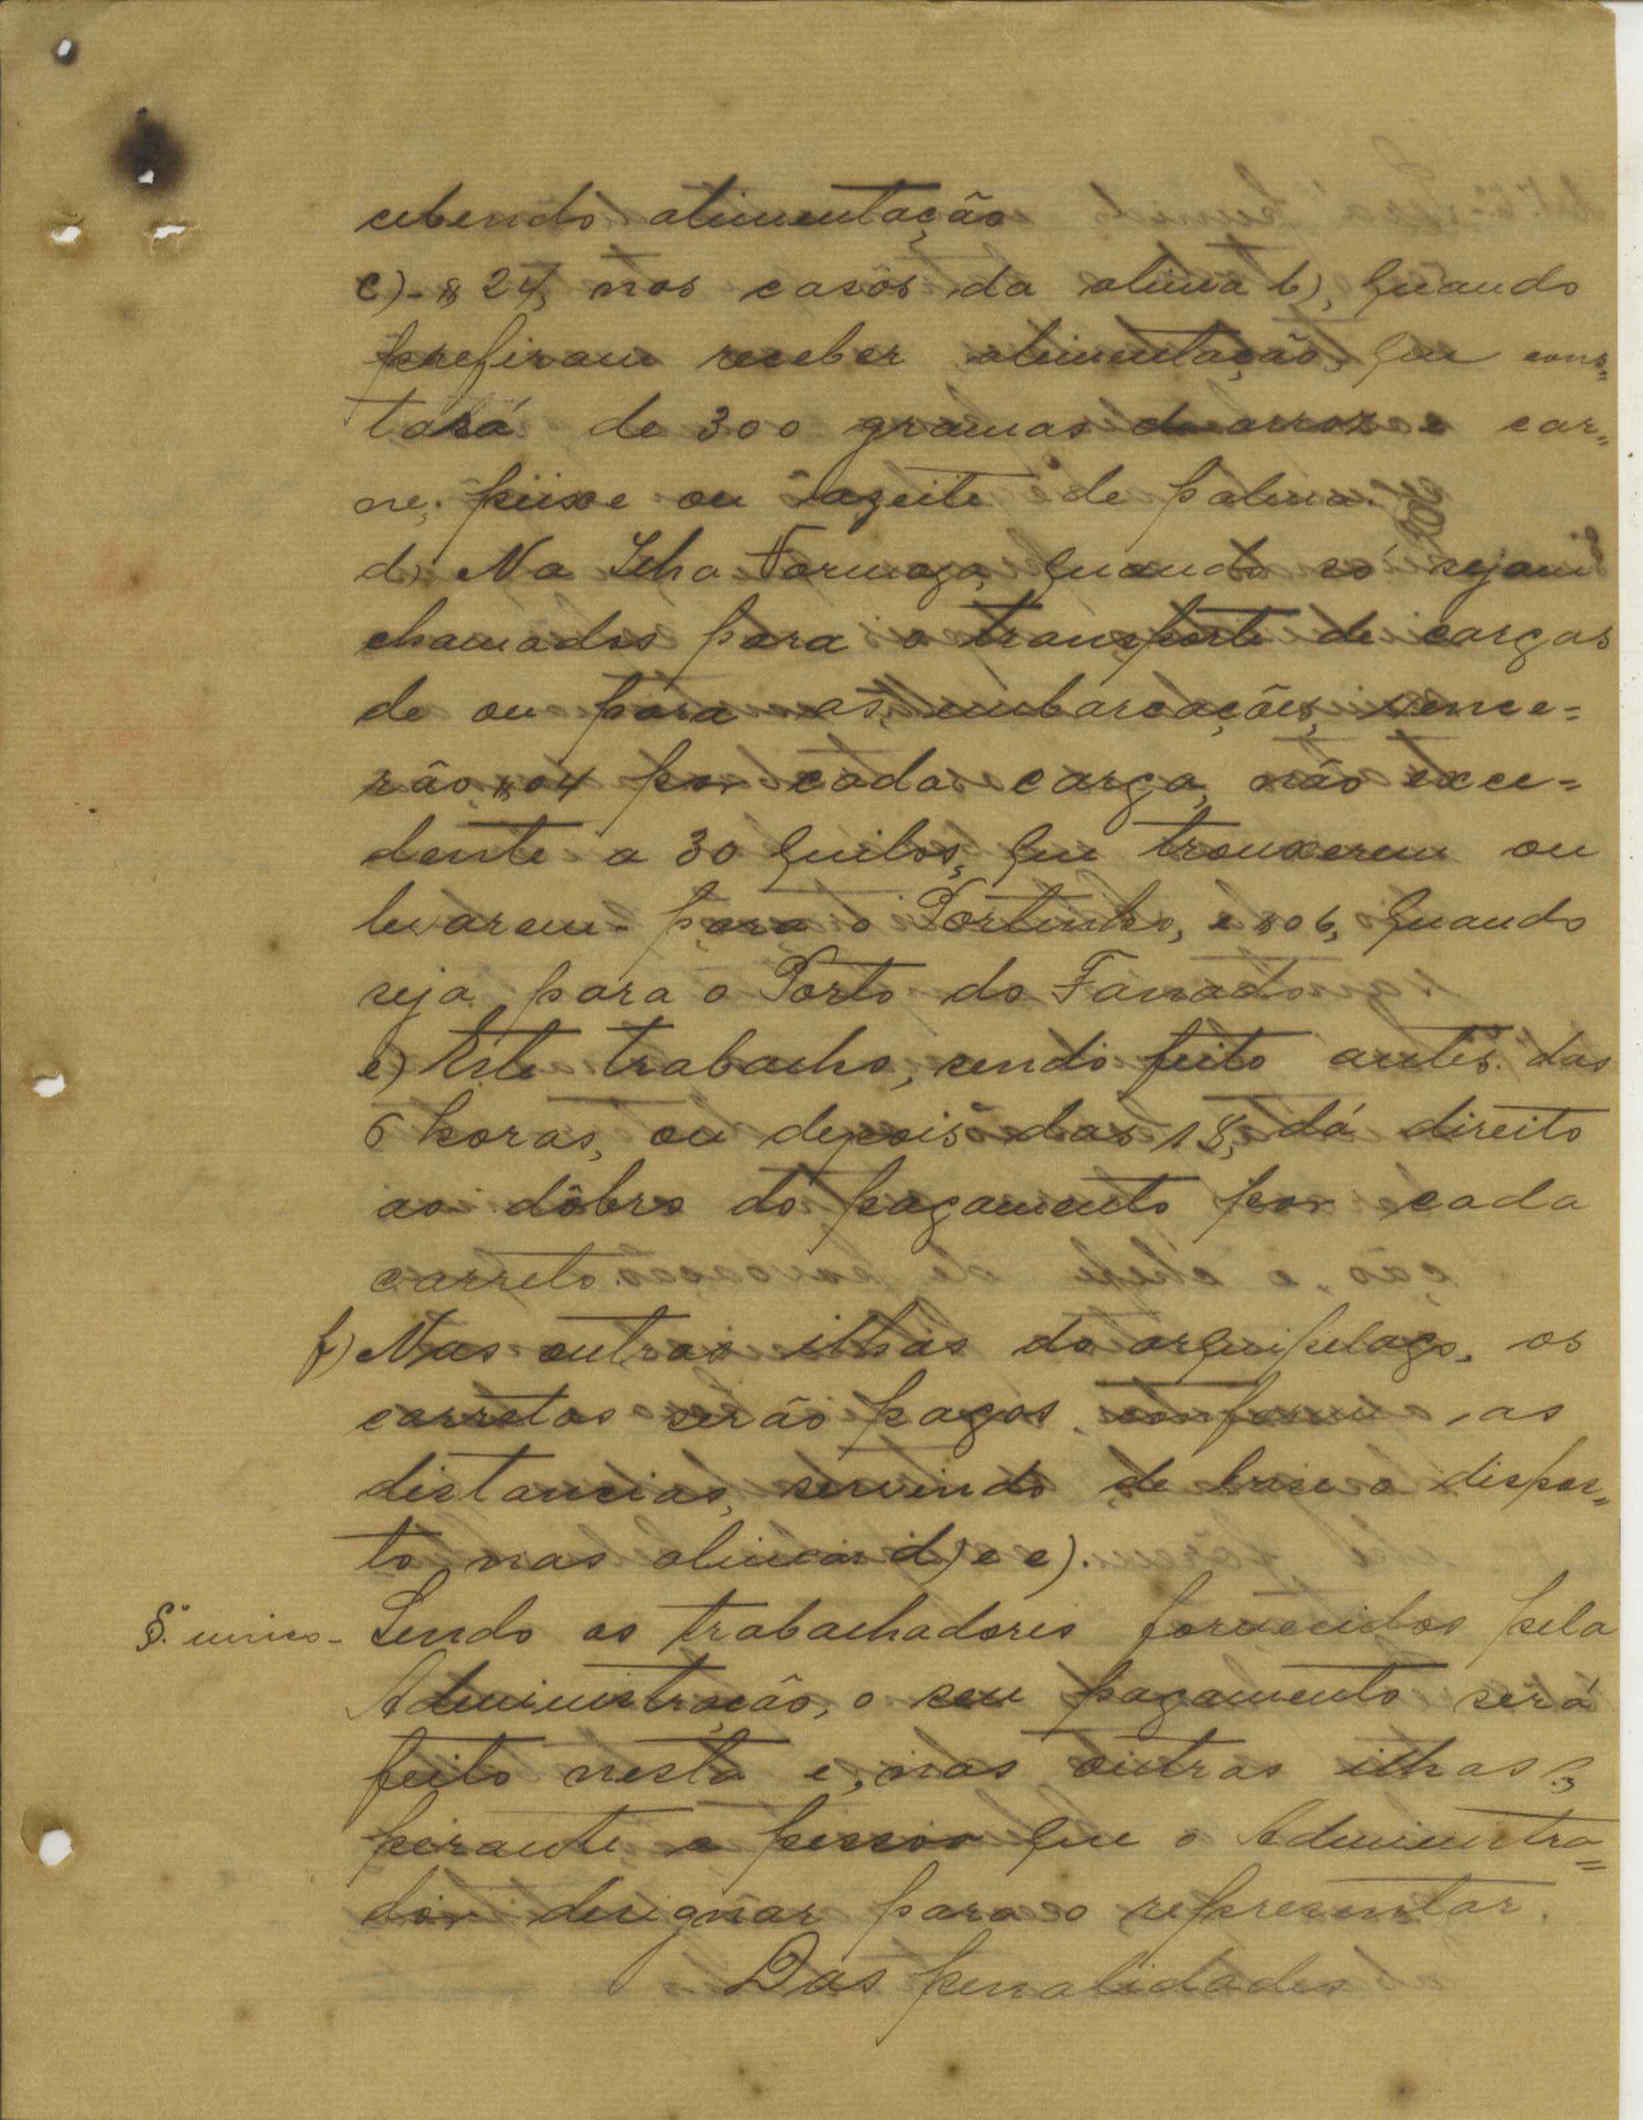 cebendo alimentação
c)-$24, nos casos da alinea b), quando
prefiram receber alimentação, que cons=
tará de 300 gramas de arroz e car=
ne, peixe ou azeite de palma.
d) Na Ilha Formoza, quando só sejam
chamados para o transporte de cargas
de ou para as embarcações, vence=
rão $04 por cada carga, não exce=
dente a 30 quilos, que trouxerem ou
levarem para o Portinho, e $06, quando
seja para o Porto do
e) Este trabalho, sendo feito antes das
6 horas, ou depois das 18, dá direito
ao dôbro do pagamento por cada
carreto.
f) Nas outras ilhas do arquipelago, os
carretos serão pagos conforme as
distancias, servindo de base o dispos=
to nas alineas d) e e).
§.º unico - Sendo os trabalhadores fornecidos pela
Administração, o seu pagamento será
feito nesta e, nas outras ilhas,
perante a pessoa que o Administra=
dor designar para o representar.
Das penalidades